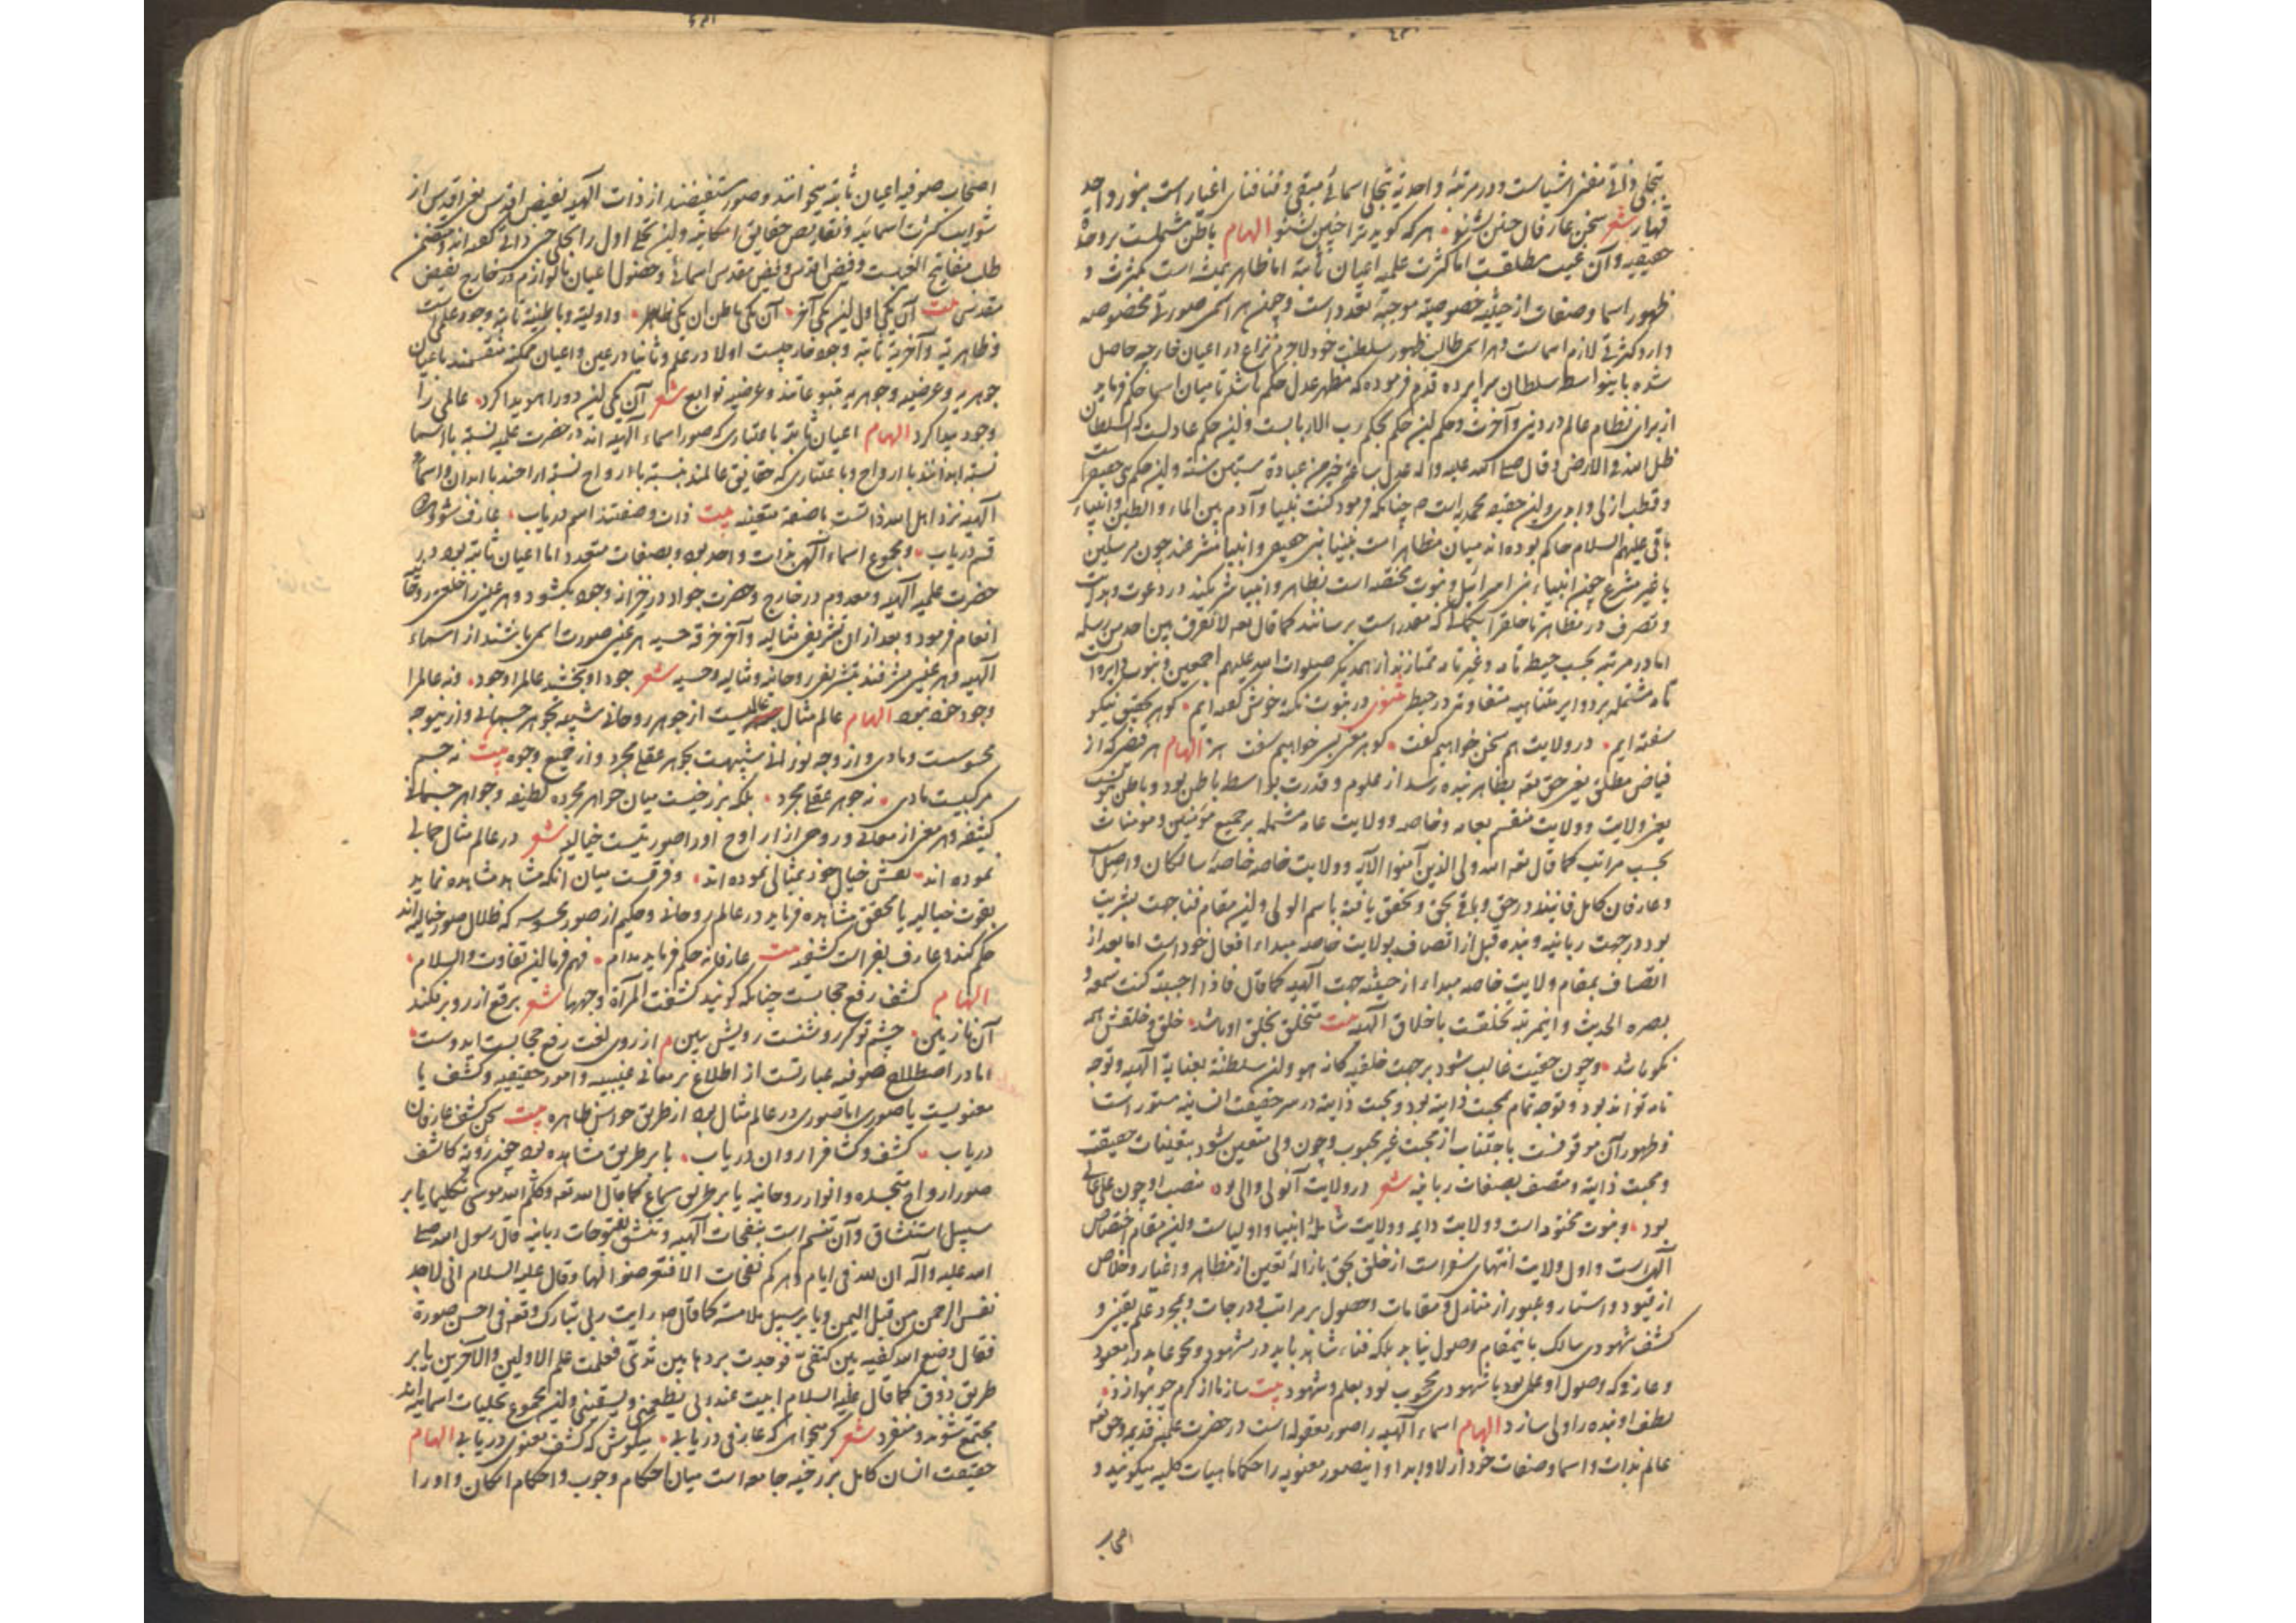 بتجلی ذاتی مفنی اشیاست و در مرتبهٔ واحدیة بتجلی اسمائی مبقی و فنا فنای اغیار است بنور واحد
قهار شعر سخن عارفان چنین بشنو هر که گوید ترا چنین بشنو الهام باطن مشتملست بر وحدة
حقیقیه و آن غیب مطلقست اما کثرت علمیه اعیان ثابته اما ظاهر همیشه است بکثرت و
ظهور اسما و صفات از حیثیة خصوصیة موجبهٔ تعدد است و چون هر اسمی صورتی مخصوصه
دارد کثرتی لازم اسماست و هر اسمی طالب ظهور سلطنت خود لاجرم نزاع در اعیان خارجیه حاصل
شده باینواسطه سلطان سراپرده قدم فرموده که مظهر عدل حکم باشد تا میان اسما حکم فرماید
از برای نظام عالم در دنیی و آخرت و حکم این حکم بحکم رب الاربابست و این حکم عادلست که السلطان
ظل الله فی الارض و قال صلی الله علیه و اله عدل ساعة خیر من عبادة ستین سنة و این حکم نبی حقیقی است
و قطب ازلی و ابدی و این حقیقه محمدیه است م چنانکه فرمود کنت نبیا و آدم بین الماء و الطین و انبیاء
باقی علیهم السلام حاکم بوده اند میان مظاهر امت نبیند نبی حقیقی و انبیا مشرعند چون مرسلین
یا غیر مشرع چون انبیاء بنی اسرائیل و نبوت مختصه است بظاهر و انبیا شریکند در دعوت و هدایت
و تصرف در مظاهر تا خلق را بکمال که مقدر است برسانند کما قال تعه لا نفرق بین احد من رسله
اما در مرتبه بحسب حیطهٔ تامه و غیر تامه ممتازند از همدیگر صلوات الله علیهم اجمعین و نبوت دایرهٔ است
تامه مشتمله بر دوایر متناهیه متفاوته در حیطه مثنوی در نبوت نکتهٔ خوش گفته ایم گوهر تحقیق نیکو
سفته ایم در ولایت هم سخن خواهیم گفت گوهر معنی بسی خواهیم سفت الهام هر فیض که از
فیاض مطلق یعنی حق تعه بظاهر بنده رسد از علوم و قدرت بواسطه باطن بود و باطن نبوت
یعنی ولایت و ولایت منقسم بعامه و خاصه و ولایت عامه مشتمله بر جمیع مؤمنین و مومنات
بحسب مراتب کما قال تعه الله ولی الذین آمنوا الآیه و ولایت خاصه خاصهٔ سالکان واصل
و عارفان کامل فانیند در حق و باقی بحق و تحقق یافته باسم الولی و این مقام فنا جهت بشریت
بود در جهت ربانیه و بنده قبل از اتصاف بولایت خاصه مبداء افعال خود است اما بعد از
اتصاف بمقام ولایت خاصه مبداء از حیثیه جهت آلهیه کما قال فاذا احببته کنت سمعه و
بصره الحدیث و اینمرتبه تخلقست باخلاق آلهیه بیت متخلق بخلق او باشد خلق و خلقش همه
نکو باشد و چون حقیت غالب شود بر جهت خلقیه کانه هو و این سلطنة بعنایة آلهیه و توجه
تامه تواند بود و توجه تمام بمحبت ذاتیه بود و محبت ذاتیه در سر حقیقت انسانیه مستور است
و ظهور آن موقوفست باجتناب از محبت غیر محبوب و چون ولی متعین شود بتعینات حقیقت
و محبت ذاتیه و متصف بصفات ربانیه شعر در ولایت آنولی والی بود منصب او چون علی عالی
بود و نبوت مختومه است و ولایت دایمه و ولایت شاملهٔ انبیا و اولیاست و این مقام اختصاص
آلهی است و اول ولایت انتهای سفر است از خلق بحق بازالهٔ تعین از مظاهر و اغیار و خلاص
از قیود و استار و عبور از منازل و مقامات و حصول بر مراتب و درجات و بمجرد علم یقینی و
کشف شهودی سالک باینمقام وصول نیابد بلکه فناء شاهد باید در مشهود و محو عابد در معبود
و عارفی که وصول او علمی بود یا شهودی محجوب بود بعلم و شهود بیت ساز ما از کرم چو بنوازد
لطف او بنده را ولی سازد الهام اسماء آلهیه را صور معقوله است در حضرت علمیه قدیمه و حق تعه
عالم بذات و اسما و صفات خود ازلا و ابدا و اینصور معنویه را حکما ماهیات کلیه میگویند و
اصحاب
اصحاب صوفیه اعیان ثابته میخوانند و صور مستفیضند از ذات آلهیه بفیض اقدس یعنی اقدس از
شوایب کثرت اسمائیه و نقایص حقایق امکانیه و این تجلی اول را تجلی حبی ذاتی گفته اند و متضمن
طلب مفاتیح الغیبست و فیض اقدس و فیض مقدس اسمائی و حصول اعیان با لوازم در خارج بفیض
مقدس بیت آن یکی اول این یکی آخر آن یکی باطن این یکی ظاهر و اولیة و باطنیة ثابته وجود علمی است
و ظاهریة و آخریة ثابته وجود خارجیست اولا در علم و ثانیا در عین و اعیان ممکنه منقسمند باعیان
جوهریه و عرضیه و جوهریه متبوعاتند و عرضیه توابع شعر آن یکی این دو را هویدا کرد عالمی را
وجود پیدا کرد الهام اعیان ثابته باعتباری که صور اسماء آلهیه اند در حضرت علمیه نسبة با اسما
نسبة ابدانند با ارواح و باعتباری که حقایق عالمند بنسبة با ارواح نسبة ارواحند با ابدان و اسماء
آلهیه نزد اهل الله ذاتست با صفة متعینه بیت ذات و صفتند اسم دریاب عارف شو و این
قسم دریاب و مجموع اسماء آلهی بذات واحد بود و بصفات متعدد اما اعیان ثابته بود در
حضرت علمیه آلهیه و معدوم در خارج و حضرت جواد در خزانه وجود بگشود و هر عینی را خلعتی روحانی
انعام فرمود و بعد از ان تشریفی مثالیه و آخر خرقه حسیه هر عینی صورت اسمی باشند از اسماء
آلهیه و هر عینی مشرفند بتشریفی روحانیه و مثالیه و حسیه شعر جود او بخشد عالم را وجود ورنه عالم را
وجود خود نبود الهام عالم مثال عالمیست از جوهر روحانی شبیه بجوهر جسمانی و از ینوجه
محسوسست و مادی و از وجه نورانی شبیهست بجوهر عقلی مجرد و از جمیع وجوه بیت نه جسم
مرکبیست مادی نه جوهر عقلی مجرد بلکه برزخیست میان جواهر مجرده لطیفه و جواهر جسمانی
کثیفه و هر معنی از معانی و روحی از ارواح او را صورتیست خیالیه شعر در عالم مثال جمالی
نموده اند نقش خیال خود بمثالی نموده اند و فرقست میان انکه مشاهد مشاهده نماید
بقوت خیالیه یا محقق مشاهده فرماید در عالم روحانی و حکیم از صور محسوسه که ظلال صور خیالیه اند
حکم کند و عارف بفراست کشفیه بیت عارفانه حکم فرماید مدام فهم فرما این تفاوت والسلام
الهام کشف رفع حجابست چنانکه گویند کشفت المرآة وجهها شعر برقع از رو برفکند
آن نازنین چشم تو گر روشنست رویش ببین م از روی لغت رفع حجابست ایدوست
اما در اصطلاح صوفیه عبارتست از اطلاع بر معانی غیبیه و امور حقیقیه و کشف یا
معنویست یا صوری اما صوری در عالم مثال بود از طریق حواس ظاهره بیت سخن کشف عارفان
دریاب کشف و کشاف را روان دریاب یا بر طریق مشاهده بود چون رؤیة کاشف
صور ارواح متجسده و انوار روحانیه یا بر طریق سماع کما قال الله تعه و کلم الله موسی تکلیما یا بر
سبیل استنشاق و آن تنسم است بنفحات آلهیه و تنشق بفتوحات ربانیه قال رسول الله صلی
الله علیه و آله ان لله فی ایام دهرکم نفحات الا فتعرضوا لها و قال علیه السلام انی لاجد
نفس الرحمن من قبل الیمن و یا بر سبیل ملامسه کما قال ص رایت ربی تبارک و تعه فی احسن صورة
فقال وضع الله کفیه بین کتفی فوجدت بردها بین ثدیی فعلمت علم الاولین و الآخرین یا بر
طریق ذوق کما قال علیه السلام ابیت عند ربی یطعمنی و یسقینی و این مجموع تجلیات اسمائیه اند
مجتمع شوند و منفرد شعر گر میخواهی که عارفی دریابی میکوش که کشف معنوی دریابی الهام
حقیقت انسان کامل برزخیه جامعه است میان احکام وجوب و احکام امکان و او را